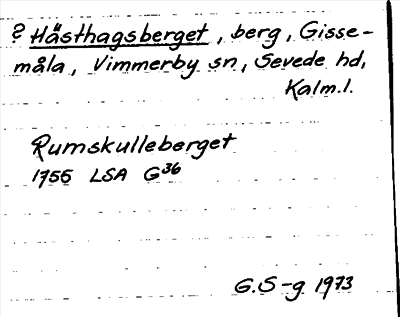 ? Hästhagsberget, berg, Gisse-
måla, Vimmerby sn, Sevede hd,
Kalm.l.
Rumskulleberget
1755 LSA G36
G.S-g 1973